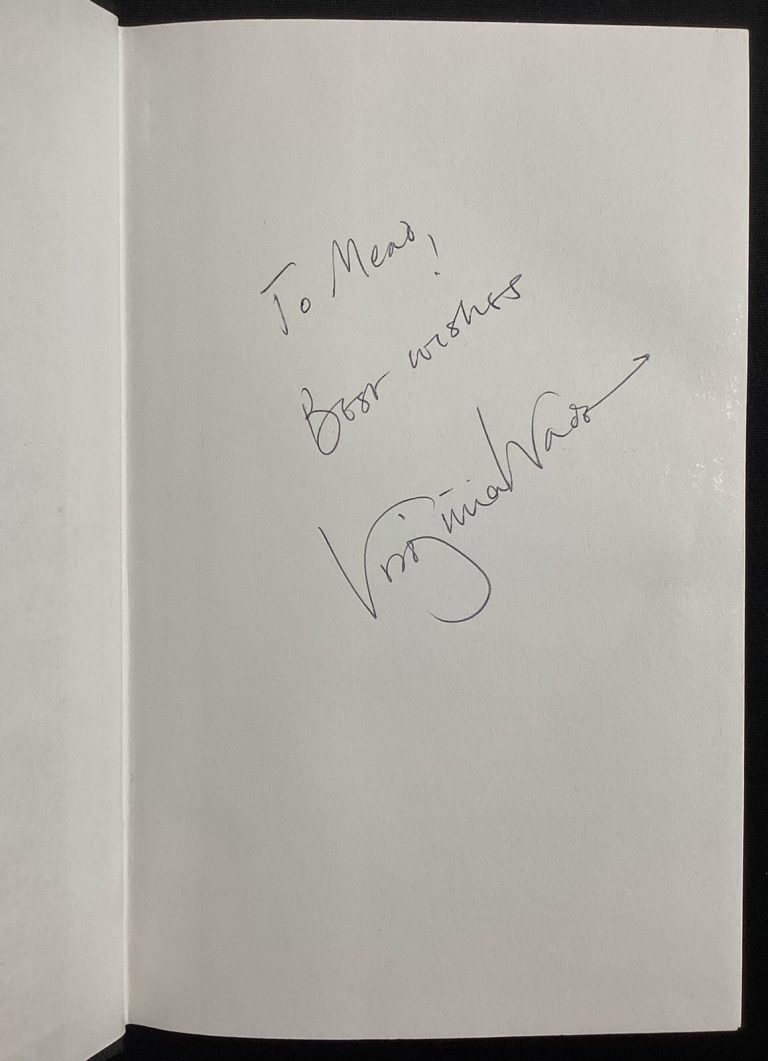 To Mead!
Best wishes
Virginia Wade